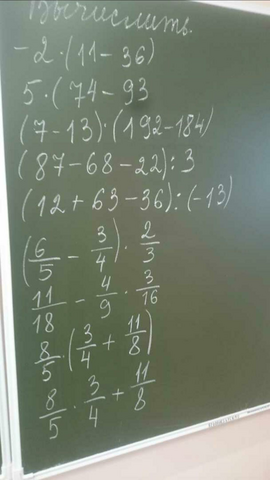 Вычислить.
-2·(11-36)
5·(74-93
(7-13)·(192-184)
(87-68-22):3
(12+63-36):(-13)
(6/5 - 3/4)·2/3
11/18 - 4/9 · 3/16
8/5·(3/4 + 11/8)
8/5 · 3/4 + 11/8